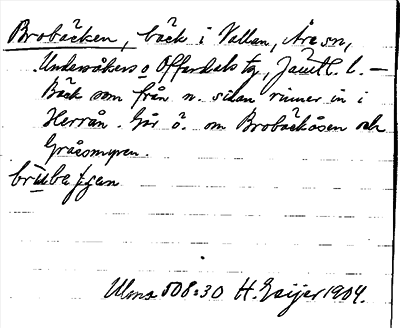 Brobäcken, bäck i Vallan, Åre sn,
Undersåkers o Offerdals tg, Jämtl. l. —
Bäck som från n. sidan rinner in i
Herrån. Går ö. om Brobäckåsen och
Gråosmyren.
brubäʃʃen
Ulma 508:30 H. Geijer 1904.